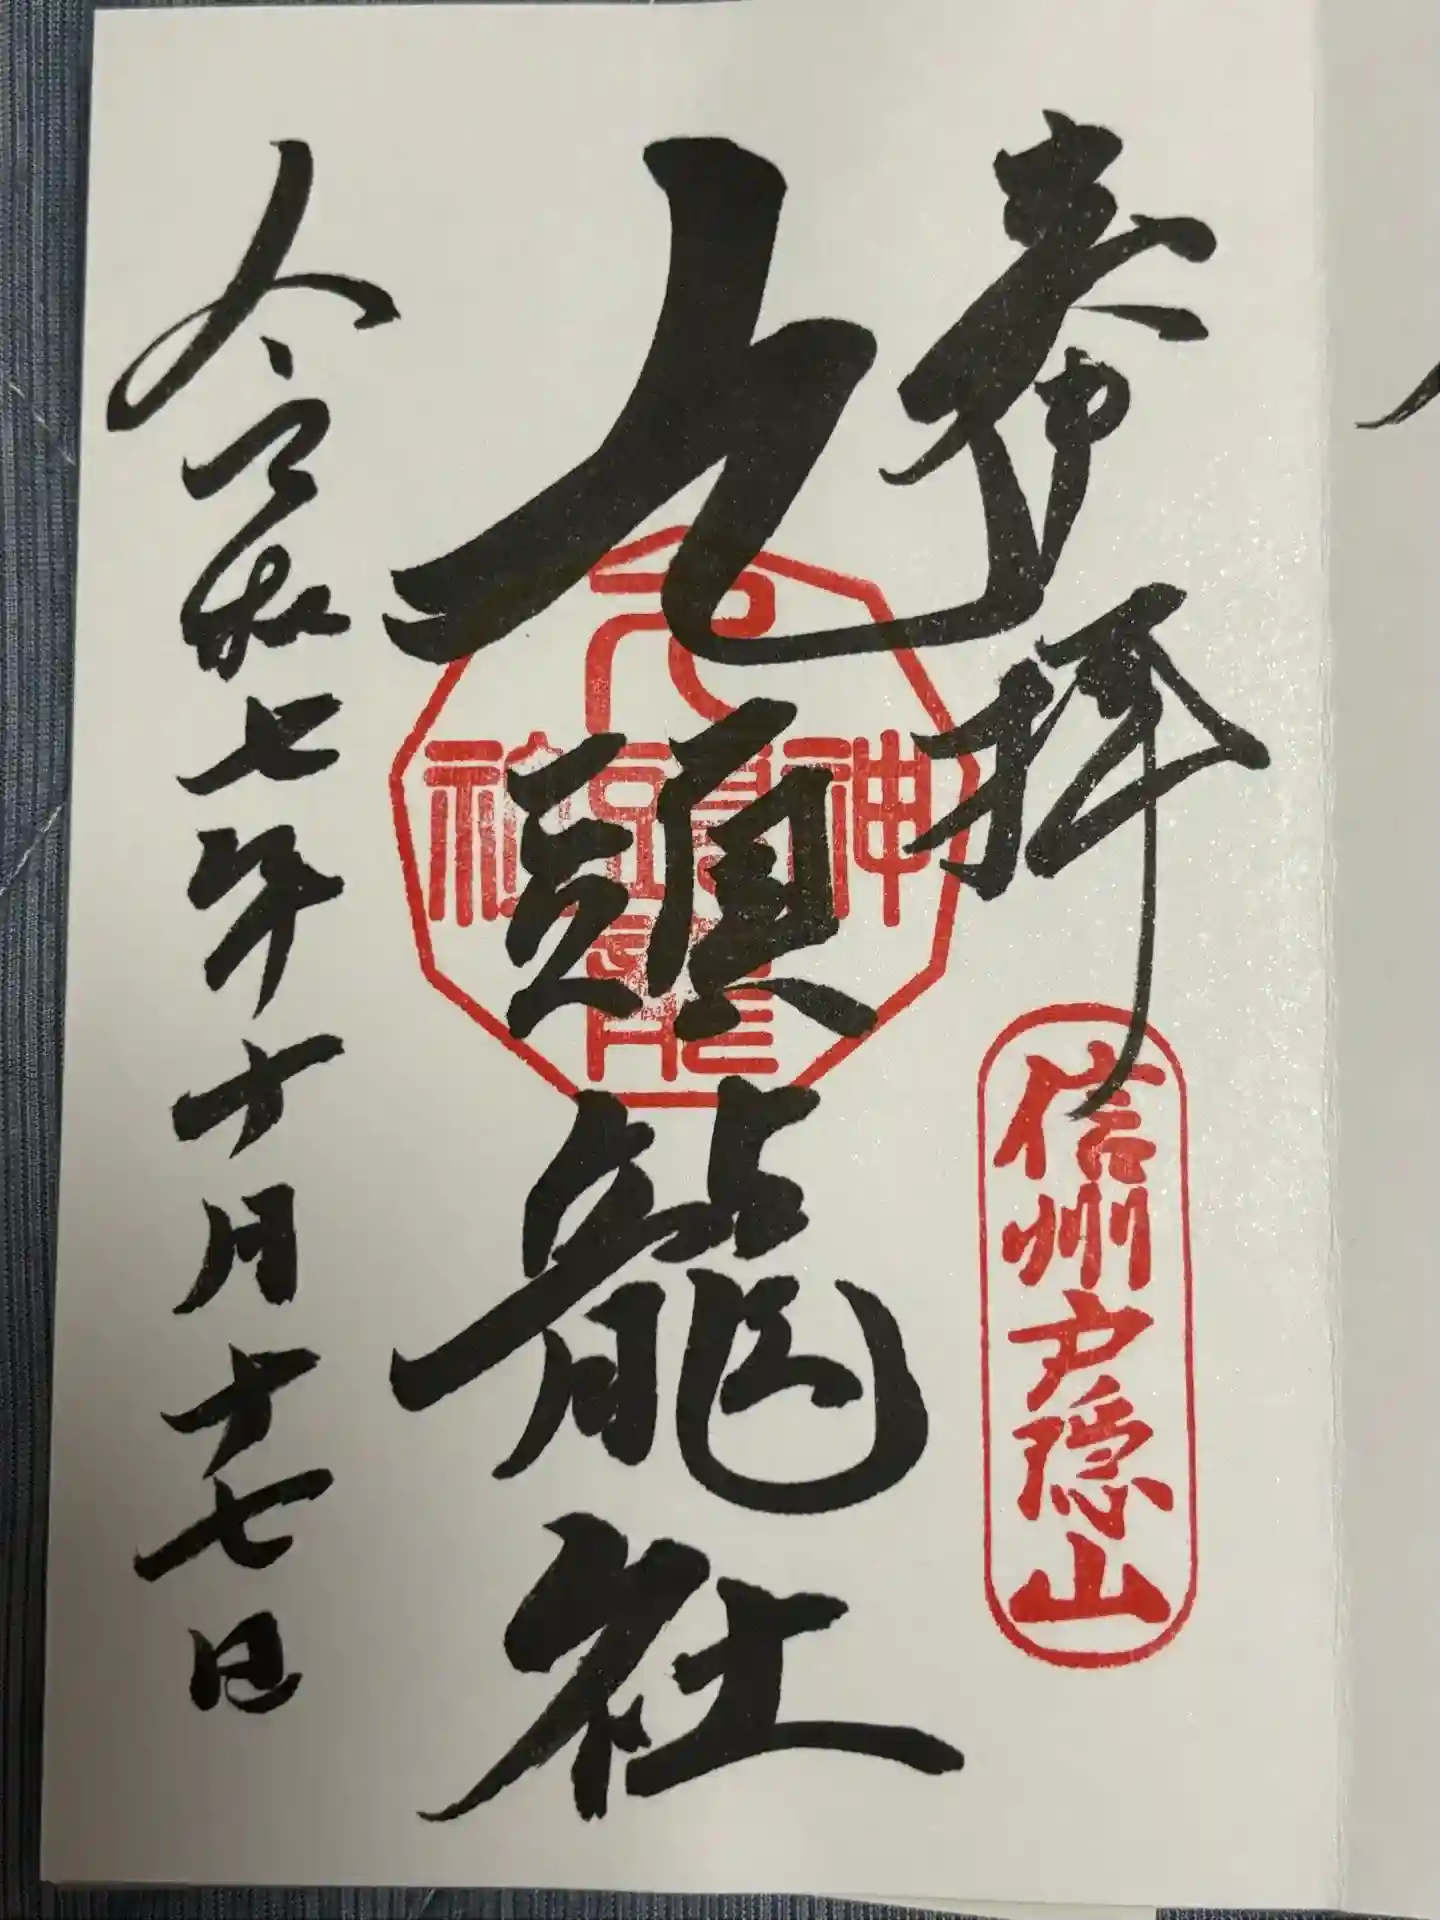 奉拝
信州戸隠山
九頭龍社
九頭龍神社
令和七年十月十七日